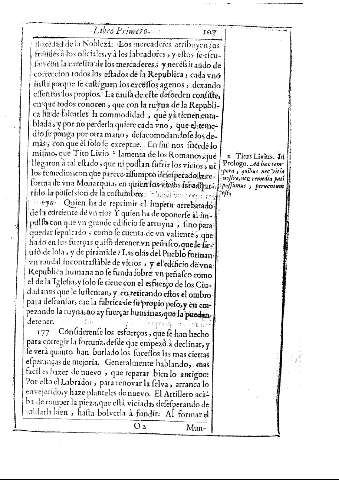 Libro Primero. 107
dad de la Nobleza. Los mercaderes atribuyen sus
à los oficiales, y à los labradores, y estos se escu-
san con la carestia de los mercaderes, y necessitando de
correccion todos los estados de la Republica, cada vno
insta porque se castiguen los excessos agenos, dexando
essentos los propios. La causa de este desorden consiste,
en que todos conocen, que con la ruyna de la Republi-
ca ha de faltarles la commodidad, que ya tienen enta-
blada, y por no perderla quiere cada vno, que el reme-
dio se ponga por otra mano, desacomodandose los de-
mas, con que èl solo se exceptue. En nos sucede lo
mismo, que Tito Livio lamenta de los Romanos, que
llegaron à tal estado, que ni podian sufrir los vicios ni
los remedios con que parece assumpto desesperado la re-
forma de vna Monarquia, en quien los vicios
rido la possession de la costumbre.
176 Quien ha de reprimir el impetu arrebatado
de la corriente de vn rio? Y quien ha de oponerse al im-
pulso con que vn grande edificio se arruyna, sino para
quedar sepultado, como se cuenta de vn valiente, que
fiado en sus fuerças quiso detener vn peñasco, que le sir-
uiò de losa, y de piramide? Las olas del Pueblo forman
vn raudal incontrastable de vicios, y el edificio de vna
Republica humana no se funda sobre vn peñasco como
el de la Iglesia, y solo se tiene con el esfuerço de los Ciu-
dadanos que le sustentan, y en retirando estos el ombro
para descansar, cae la fabrica de su propio peso, y en em-
pezando la ruyna, no ay fuerças humanas, que la puedan
detener.
177 Considerense los esfuerços, que se han hecho
para corregir la fortuna, desde que empezò à declinar, y
se verà quanto han burlado los sucessos las mas ciertas
esperanças de mejoria. Generalmente hablando, mas
facil es hazer de nuevo, que reparar bien lo antiguo:
Por esso el Labrador, para renovar la selva, arranca lo
envejecido, y haze planteles de nuevo. El Artillero aca-
ba de romper la pieza, que està viciada, desesperando de
soldarla bien, hasta bolverla à fundir. Al formar el
O 2 Mun-
2 Titus Livius. In
Prologo. Ad hæc tem-
pora, quibus nec vitia
nostra, nec remedia pati
possumus, perventum
est.